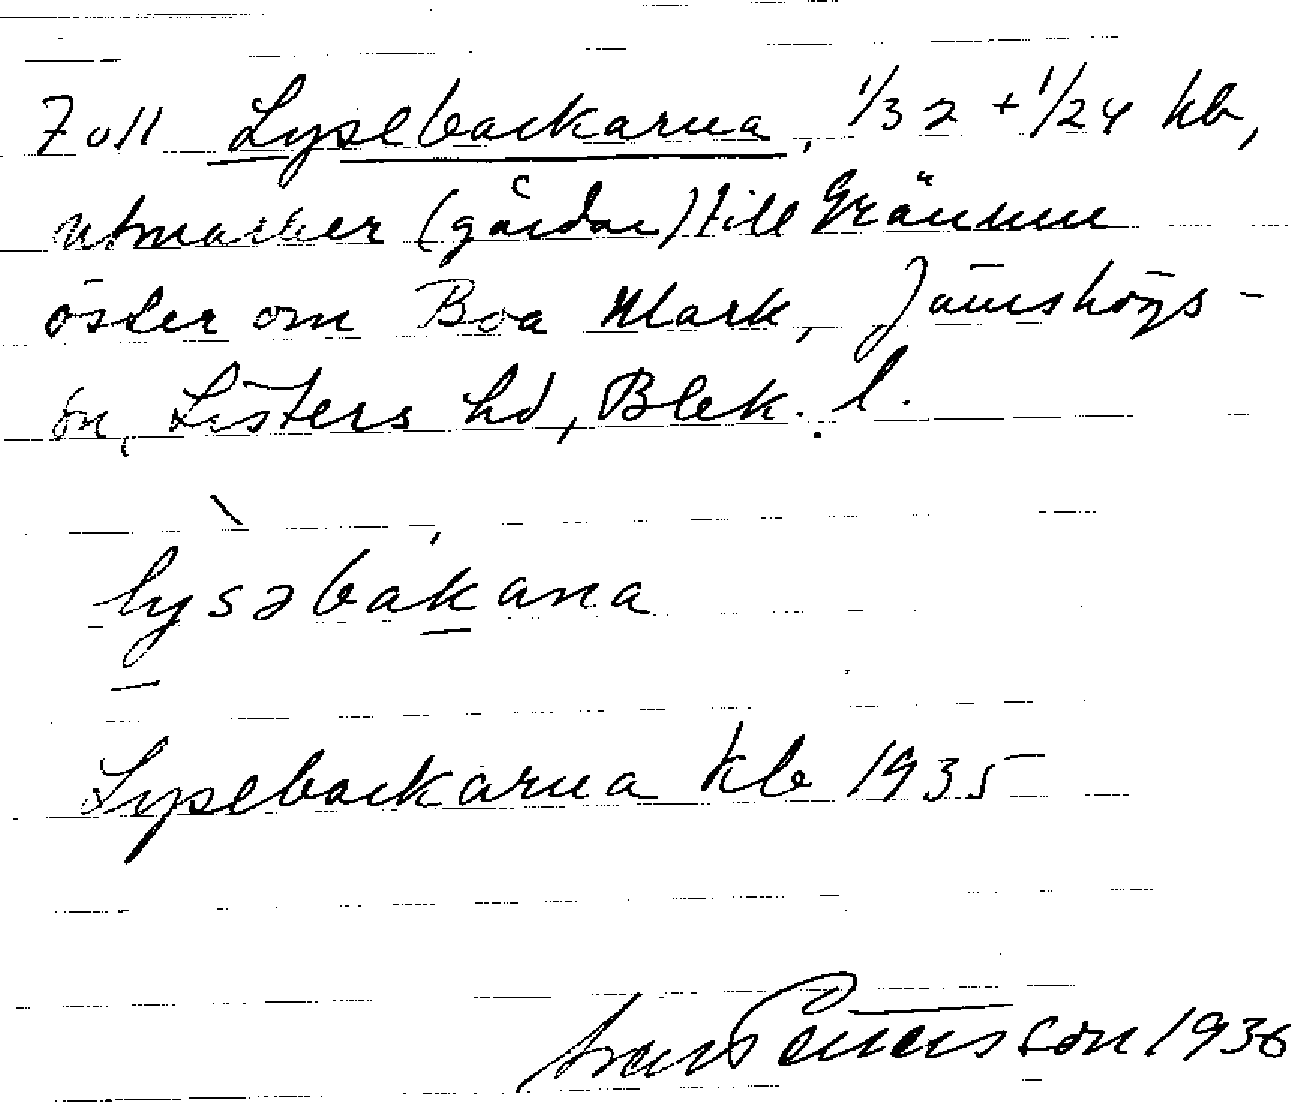 7 oll Lysebackarna, 1/32 + 1/24 kb,
utmarker (gårdar) till Gränum
öster om Boa Mark, Jämshögs-
sn, Listers hd, Blek. l.
lysəbakana
Lysebackarna kb 1935
Pettersson 1936